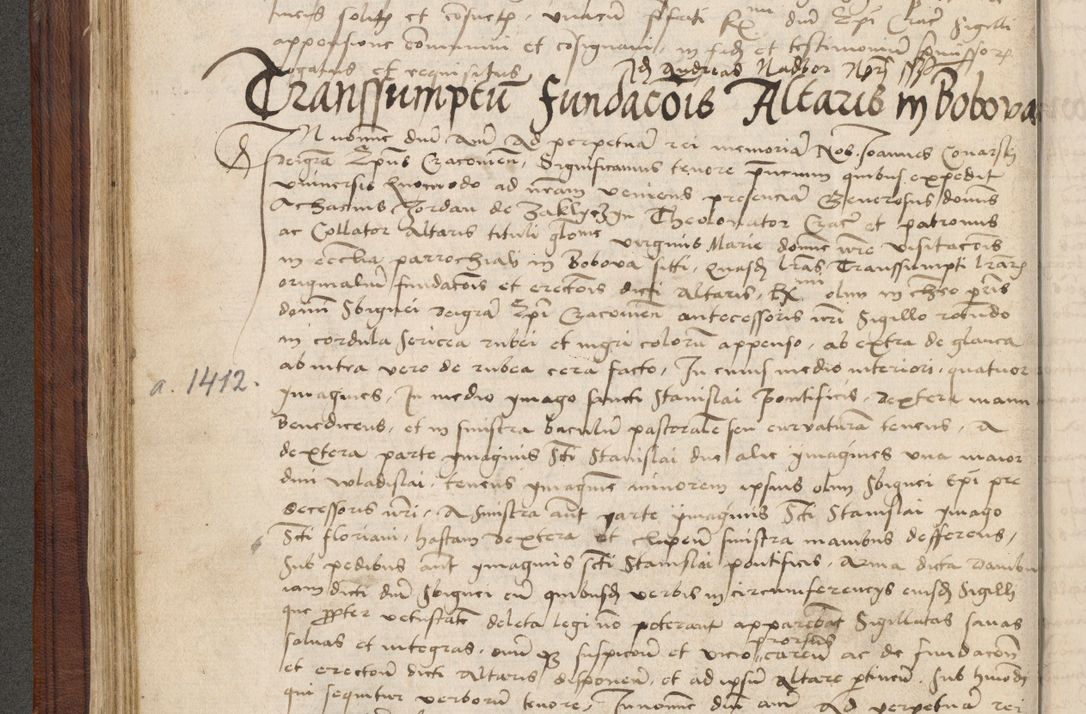 lucis solitis et consuetis, unacum prefati Rmi dni Epi Crac Sigilli
appensione communiri et consignari, in fidem et testimonium premissorum
rogatus et requisitus
Andreas Nadbor
Transsumptū Fundacōis Altaris in Bobova
In nomine dni Amē Ad perpetuā rei memoriā Nos Joannes Conarsky
dei grā Epūs Cracovien̄, Significamus tenore pn̄cium quibus expedit
universis huiusmodo ad nr̄am veniens presenciā Generosus domīs
Achacius Jordan de Zaklyczyn Theolonator Crac̄ et patronus
ac Collator altaris tituli gloriose virginis Marie domine nr̄e visitacōis
in ecclīa parrochiali in Bobova siti, quasdā lr̄as Transsumpti lr̄arū
originaliū fundacōis et erectōis dicti Altaris, Rmi olim in chr̄o pr̄is
domini Sbignei dei grā Epī Cracovien̄ antecessoris nr̄i Sigillo rotundo
in cordula sericea rubei et nigri colorū appenso, ab extra de glauca
ab intra vero de rubea cera facto, In cuius medio interiori, quatuor
a. 1412.
ymagines, In medio ymago sancti Stanislai pontificis, dextera manu
benedicens, et in sinistra baculū pastorale seu curvaturā tenens, A
dextera parte ymaginis Scti Stanislai due alie ymagines una maior
divi wladislai, tenens ymaginē minorem ipsius olim Sbignei epī pre
decessoris nr̄i, A sinistra aūt parte ymaginis Scti Stanislai ymago
Scti floriani, hastam dextera et clipeū sinistra manibus defferens,
Sub pedibus aūt ymaginis Scti Stanislai pontificis, Arma dicta
iam dicti dnī Sbignei cū quibusdā verbis in circumferencys eiusdē Sigilli
que propter vetustatē deleta legi nō poterant apparebāt Sigillatas sanas
salvas et integras, omī q̨ suspicioē et vicio prorsus carētes ac de fundacōe
et erectionē dicti Altaris disponentes, et ad ipsū altare pertinētes, Sub huiusmodi
qui sequitur verborū tenore, In nomine dnī amē Ad perpetuā rei